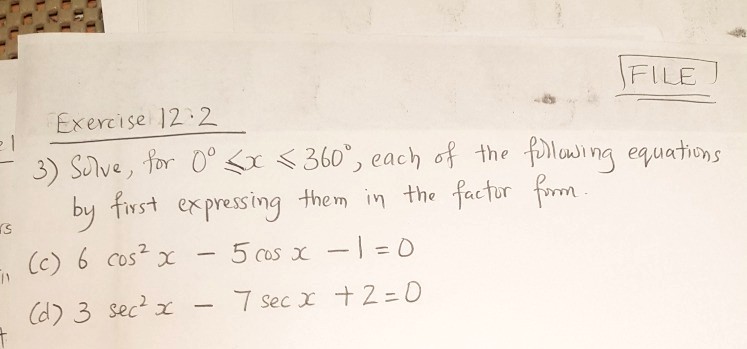 FILE
Exercise 12.2
3) Solve, for 0° ≤ x ≤ 360°, each of the following equations
by first expressing them in the factor form.
(c) 6 cos² x - 5 cos x - 1 = 0
(d) 3 sec² x - 7 sec x + 2 = 0